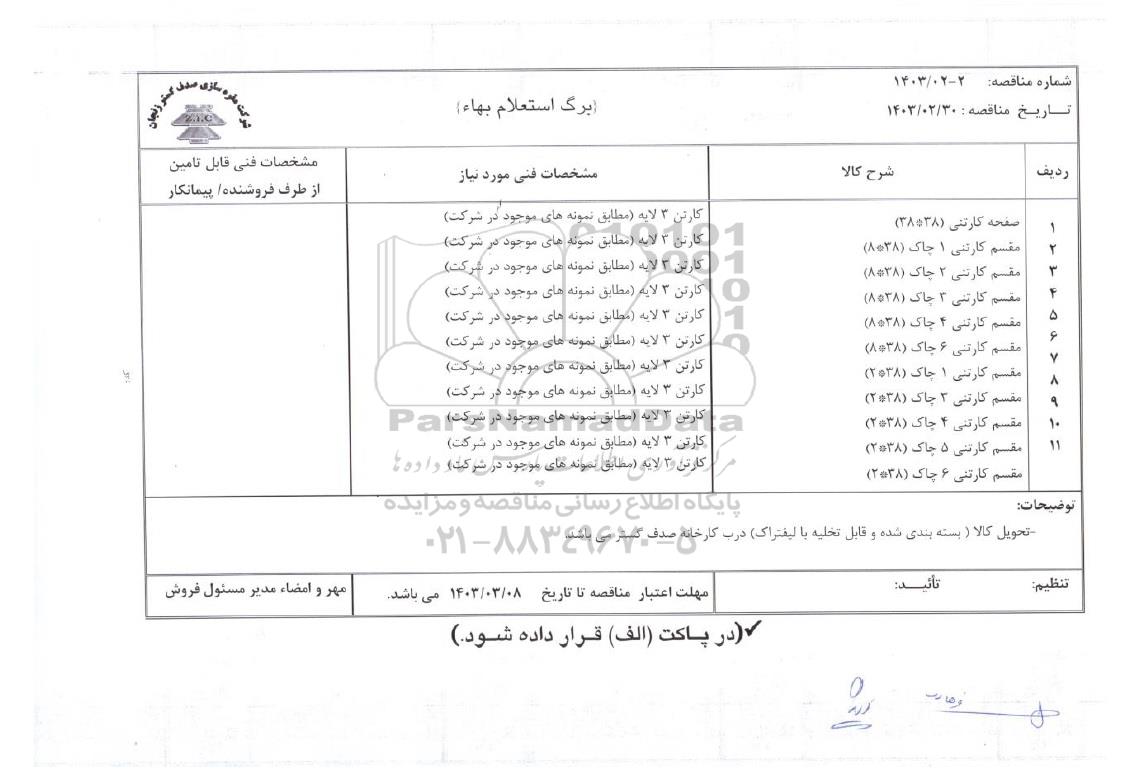 شماره مناقصه: ۱۴۰۳/۰۲-۲
تاریخ مناقصه: ۱۴۰۳/۰۲/۳۰
{برگ استعلام بهاء}
شرکت مقره سازی صدف گستر زنجان
Z.I.C
ردیف
شرح کالا
مشخصات فنی مورد نیاز
مشخصات فنی قابل تامین
از طرف فروشنده/ پیمانکار
۱ صفحه کارتنی (۳۸*۳۸) کارتن ۳ لایه (مطابق نمونه های موجود در شرکت)
۲ مقسم کارتنی ۱ چاک (۳۸*۸) کارتن ۳ لایه (مطابق نمونه های موجود در شرکت)
۳ مقسم کارتنی ۲ چاک (۳۸*۸) کارتن ۳ لایه (مطابق نمونه های موجود در شرکت)
۴ مقسم کارتنی ۳ چاک (۳۸*۸) کارتن ۳ لایه (مطابق نمونه های موجود در شرکت)
۵ مقسم کارتنی ۴ چاک (۳۸*۸) کارتن ۳ لایه (مطابق نمونه های موجود در شرکت)
۶ مقسم کارتنی ۶ چاک (۳۸*۸) کارتن ۳ لایه (مطابق نمونه های موجود در شرکت)
۷ مقسم کارتنی ۱ چاک (۳۸*۲) کارتن ۳ لایه (مطابق نمونه های موجود در شرکت)
۸ مقسم کارتنی ۳ چاک (۳۸*۲) کارتن ۳ لایه (مطابق نمونه های موجود در شرکت)
۹ مقسم کارتنی ۴ چاک (۳۸*۲) کارتن ۳ لایه (مطابق نمونه های موجود در شرکت)
۱۰ مقسم کارتنی ۵ چاک (۳۸*۲) کارتن ۳ لایه (مطابق نمونه های موجود در شرکت)
۱۱ مقسم کارتنی ۶ چاک (۳۸*۲) کارتن ۳ لایه (مطابق نمونه های موجود در شرکت)
ParsNamadData
پایگاه اطلاع رسانی مناقصه و مزایده
۰۲۱-۸۸۳۴۹۶۷۰-۵
توضیحات:
-تحویل کالا ( بسته بندی شده و قابل تخلیه با لیفتراک) درب کارخانه صدف گستر می باشد.
تنظیم:
تأئیـد:
مهلت اعتبار مناقصه تا تاریخ ۱۴۰۳/۰۳/۰۸ می باشد.
مهر و امضاء مدیر مسئول فروش
✓(در پاکت (الف) قرار داده شود.)